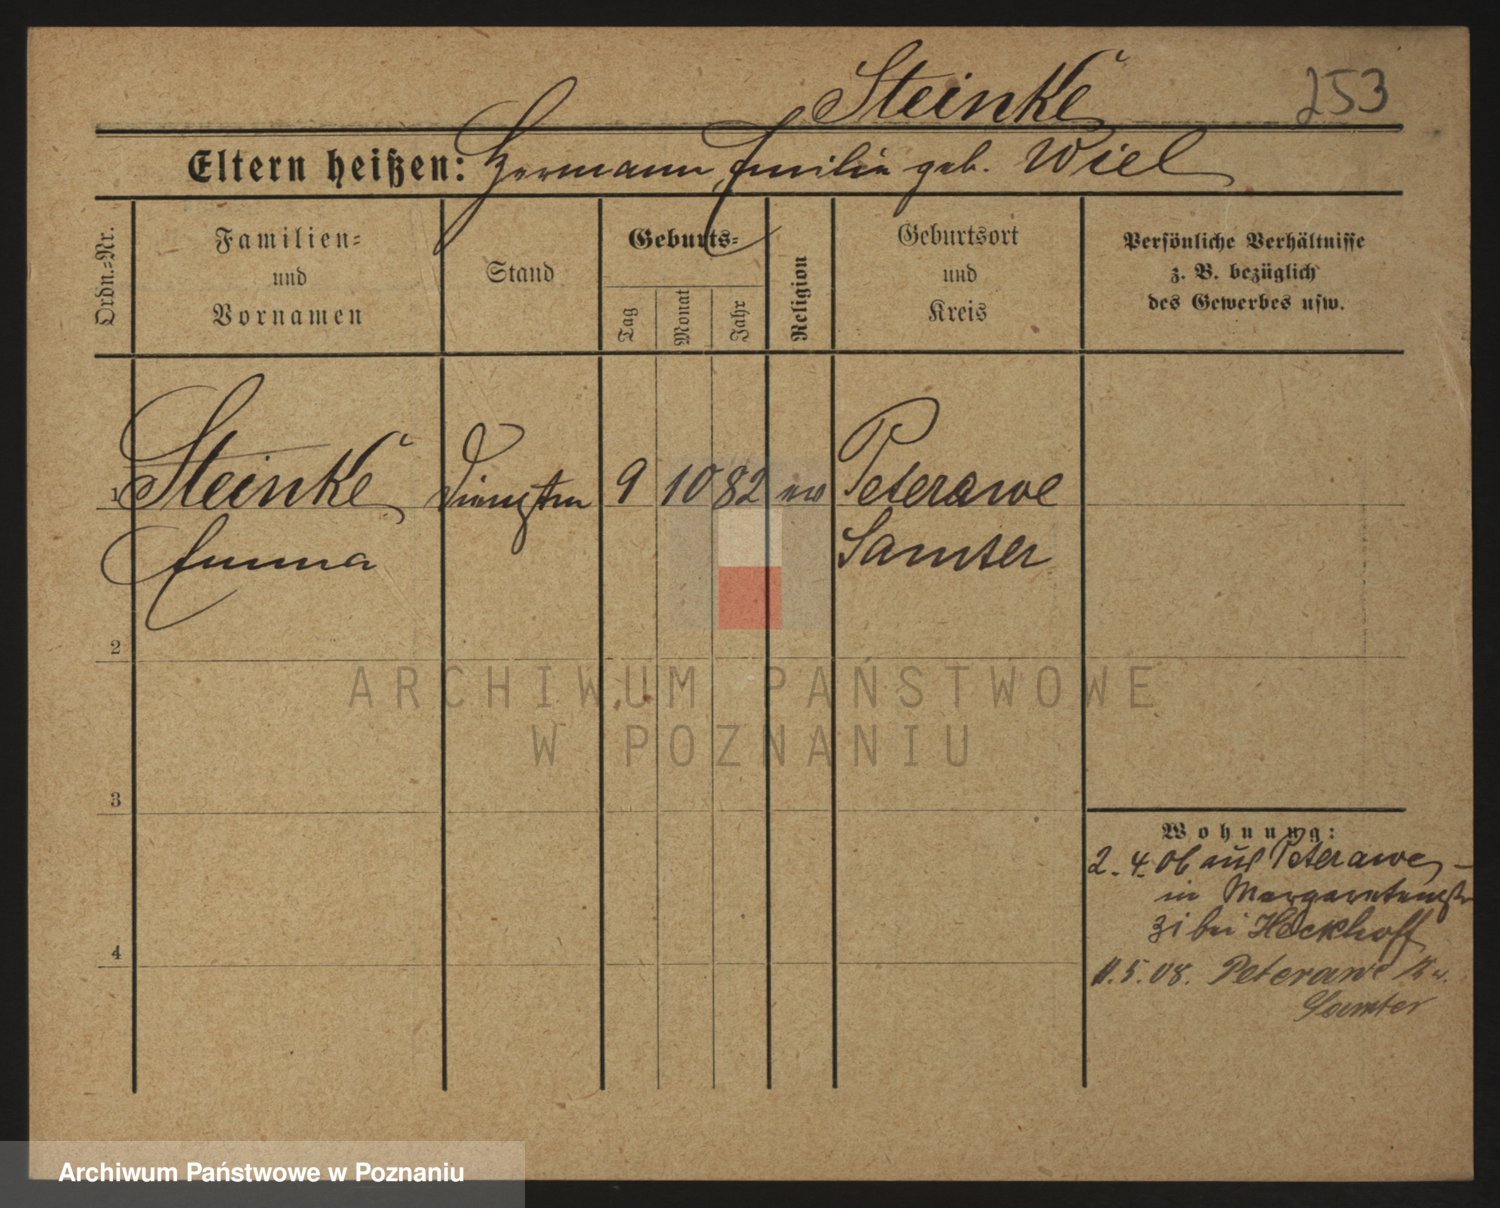 Steinke
253
Eltern heißen: Hermann, Emilie geb. Wiel
Ordn.=Nr.
Familien=
und
Vornamen
Stand
Geburts=
Tag
Monat
Jahr
Religion
Geburtsort
und
Kreis
Persönliche Verhältnisse
z. B. bezüglich
des Gewerbes usw.
1 Steinke 9 10 82 ev Peterawe
Emma Samter
2
ARCHIWUM PAŃSTWOWE
W POZNANIU
3
Wohnung:
2. 4. 06 aus Peterawe
in Margaretenstr
31 bei Höckhoff
4
11. 5. 08. Peterawe Kr.
Samter
Archiwum Państwowe w Poznaniu